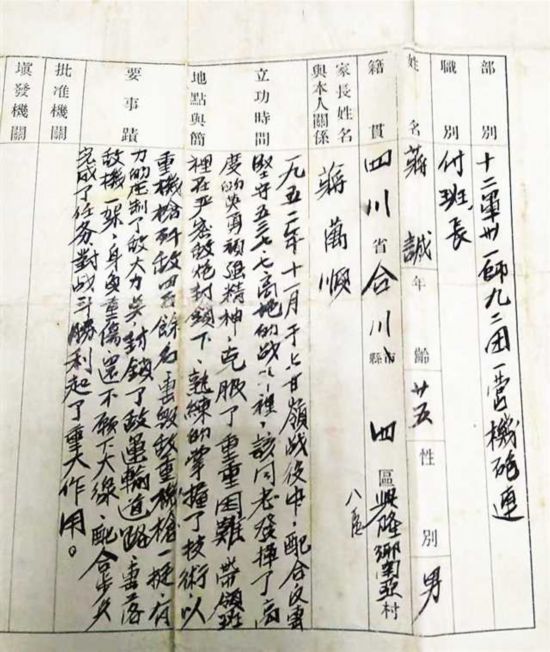 部別 十二軍卅一師九二团一营機砲連
職別 付班長
姓名 蒋誠 年齡 廿五 性別 男
籍貫 四川省合川縣市 四區興隆鄉南亞村
八區
家長姓名與本人關係 蒋萬順
立功時間地點與簡要事蹟
一九五二年十一月于上甘嶺战役中，配合反雷
堅守五三七·七高地的战斗裡，該同志發揮了高
度的英勇頑强精神，克服了重重困難 带领班
裡在严密敌炮封鎖下，熟練的掌握了技術以
重機槍歼敌四百餘名 击毁敌重機槍一挺，有
力的压制了敌火力点，封鎖了敌運輸道路 击落
敌機一架，身負重傷，還不願下火綫，配合步兵
完成了任务對战斗勝利起了重大作用。
批准機關
填發機關